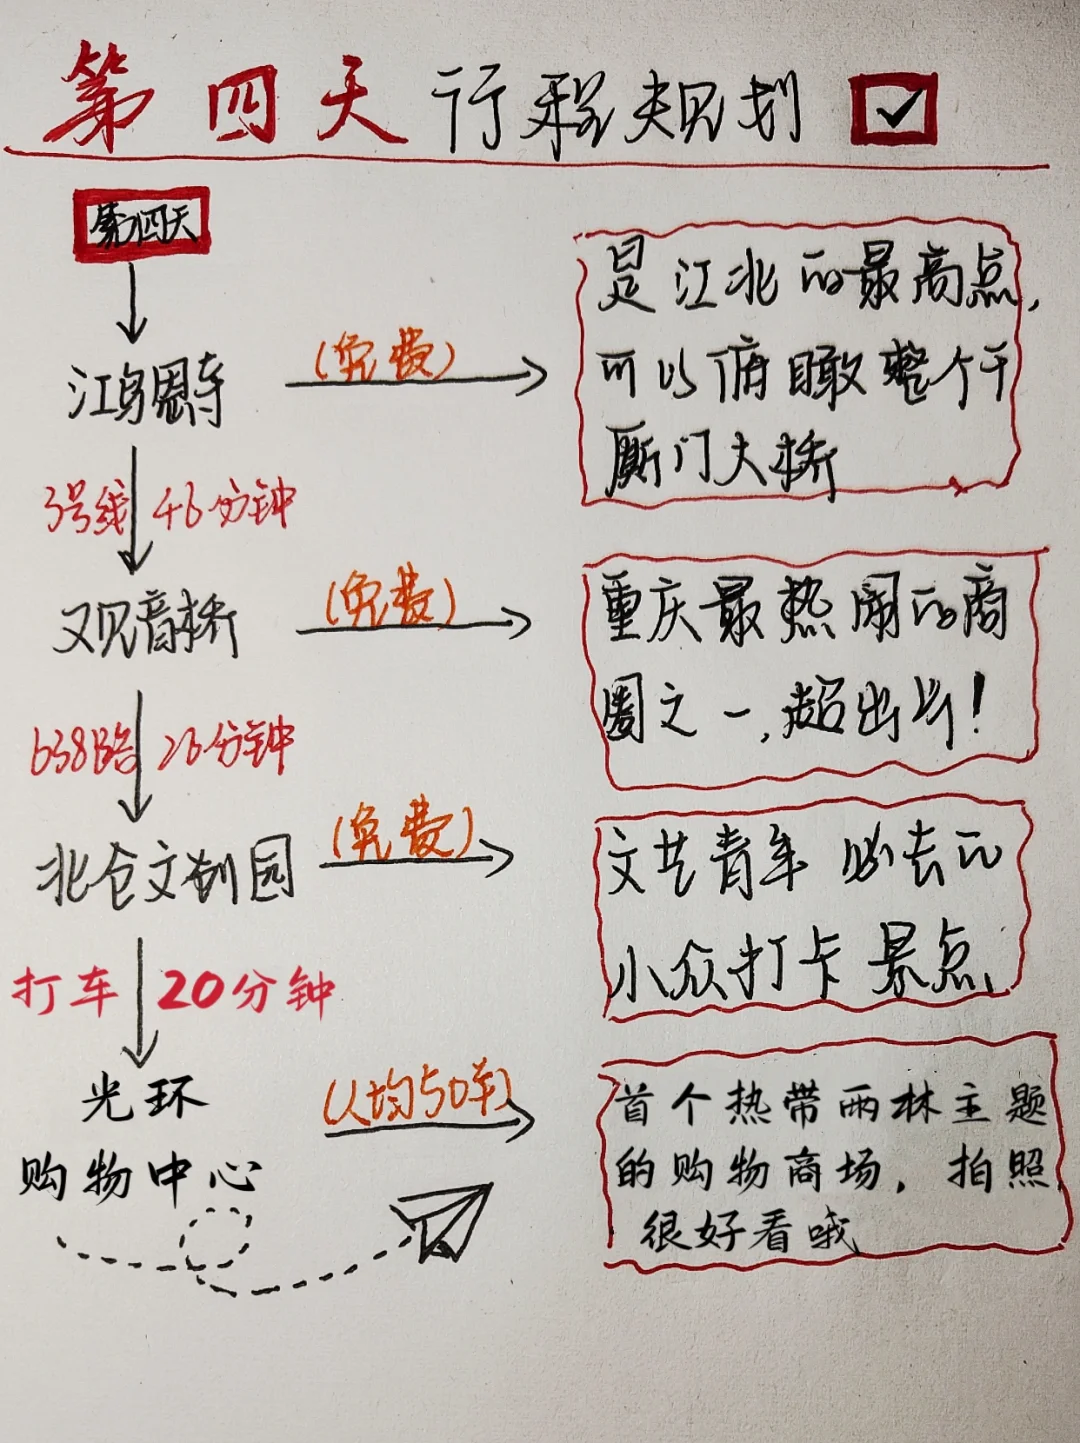 第四天行程规划
第四天
江鸟恩寺
(免费)
是江北的最高点,
可以俯瞰整个千
厮门大桥
3号线 46分钟
观音桥
(免费)
重庆最热闹的商
圈之一,超出片!
638路 26分钟
北仓文创园
(免费)
文艺青年必去的
小众打卡景点
打车 20分钟
光环
购物中心
(人均50年)
首个热带雨林主题
的购物商场,拍照
很好看哦